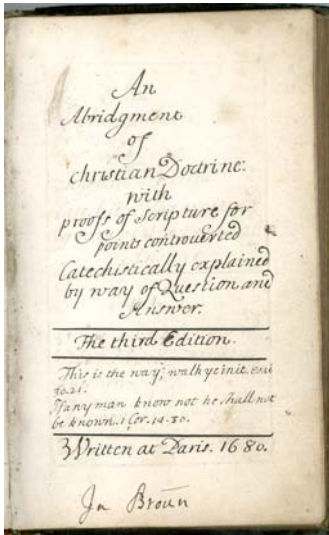 An
Abridgment
of
Christian Doctrine:
with
proofs of Scripture for
points controverted
Catechistically explained
by way of Question and
Answer.
The third Edition.
This is the way; walk ye in it.
30.21.
If any man know not he shall not
be known. 1 Cor. 14-30.
Written at Paris. 1680.
Jn Broun